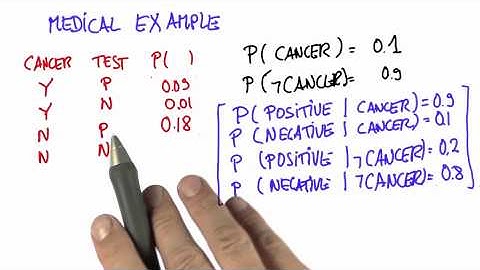 MEDICAL EXAMPLE
CANCER TEST P( )
Y P 0.09
Y N 0.01
N P 0.18
N N
P( CANCER) = 0.1
P(¬CANCER) = 0.9
P(POSITIVE | CANCER)=0.9
P (NEGATIVE | CANCER)=0.1
P (POSITIVE | ¬CANCER)=0.2
P (NEGATIVE | ¬CANCER)=0.8